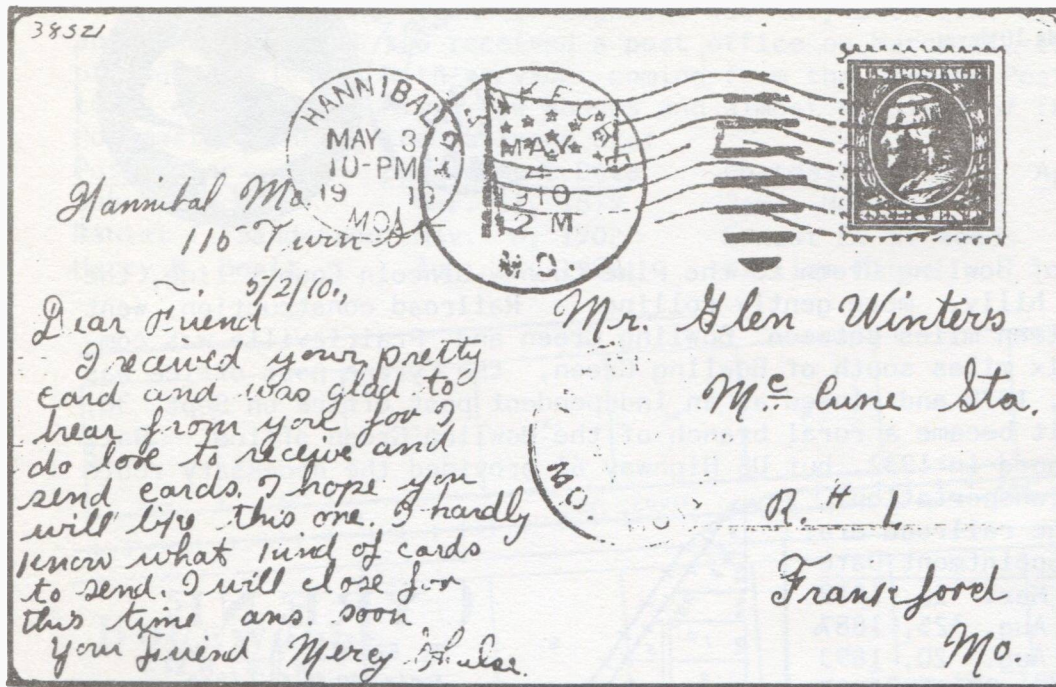 38521
HANNIBAL
MAY 3
10-PM
19 10
MO.
MAY
4
1910
2 M
MO.
U.S. POSTAGE
ONE CENT
Hannibal Mo.
116
5/2/10.
Dear Friend
I recived your pretty
card and was glad to
hear from you for I
do love to receive and
send cards. I hope you
will like this one. I hardly
know what kind of cards
to send. I will close for
this time ans. soon
Your Friend Mercy
Mr. Glen Winters
Mc Cune Sta.
R. # 1
Frankford
Mo.
MO.